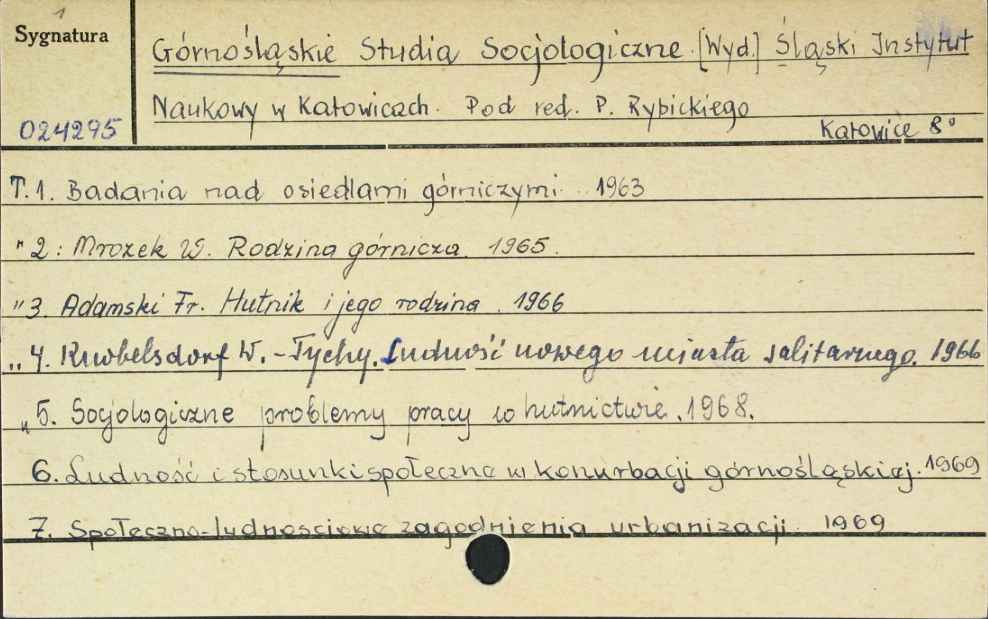 1
Sygnatura
Górnośląskie Studia Socjologiczne. [Wyd.] Śląski Instytut
Naukowy w Katowicach. Pod red. P. Rybickiego
024295
Katowice 8°
T.1. Badania nad osiedlami górniczymi. 1963
" 2: Mrozek W. Rodzina górnicza. 1965.
" 3. Adamski Fr. Hutnik i jego rodzina. 1966
" 4. Knobelsdorf W. - Tychy. Ludność nowego miasta salitarnego. 1966
" 5. Socjologiczne problemy pracy w hutnictwie. 1968.
6. Ludność i stosunki społeczne w konurbacji górnośląskiej. 1969
7. Społeczno-ludnościowe zagadnienia urbanizacji. 1969